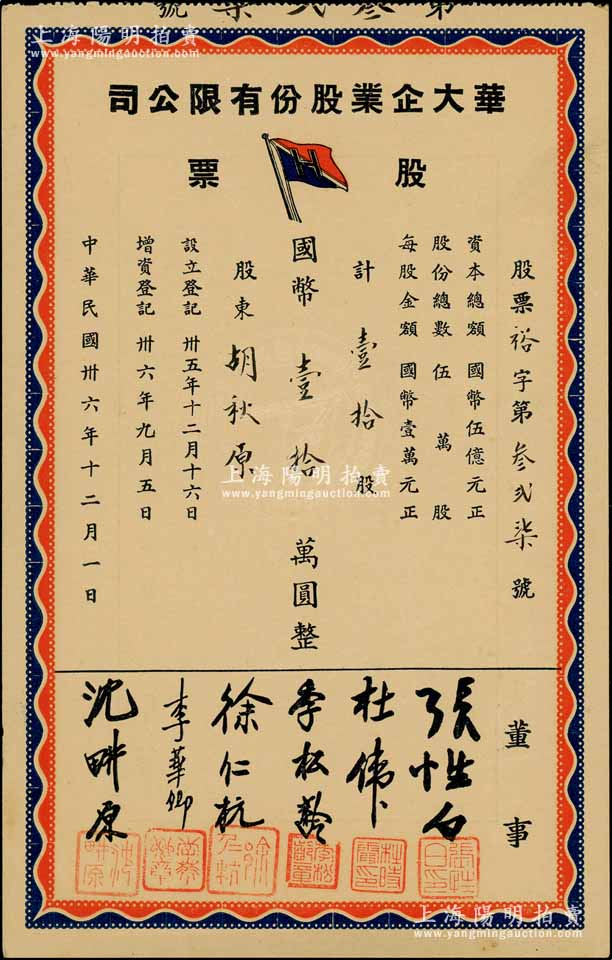 第叁弍柒號
上海陽明拍賣
www.yangmingauction.com
華大企業股份有限公司
股票
H
股票裕字第叁弍柒號
資本總額國幣伍億元正
股份總數伍萬股
每股金額國幣壹萬元正
計壹拾股
國幣壹拾萬圓整
股東胡秋原
設立登記卅五年十二月十六日
增資登記卅六年九月五日
中華民國卅六年十二月一日
上海陽明拍賣
www.yangmingauction.com
董事
張惟白
杜偉
季松齡
徐仁杭
李華卿
沈畊原
上海陽明拍賣
www.yangmingauction.com